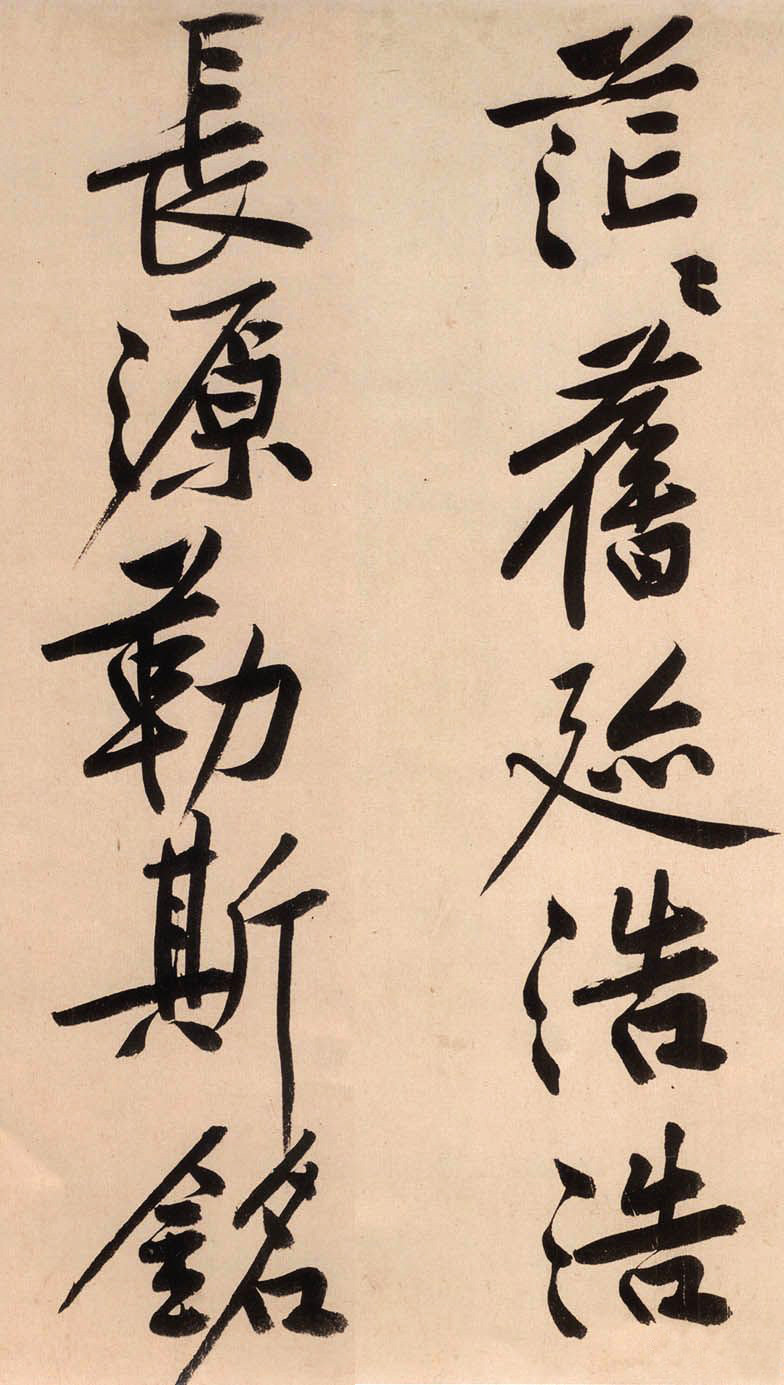 茫〻舊迹浩浩
長源勒斯銘